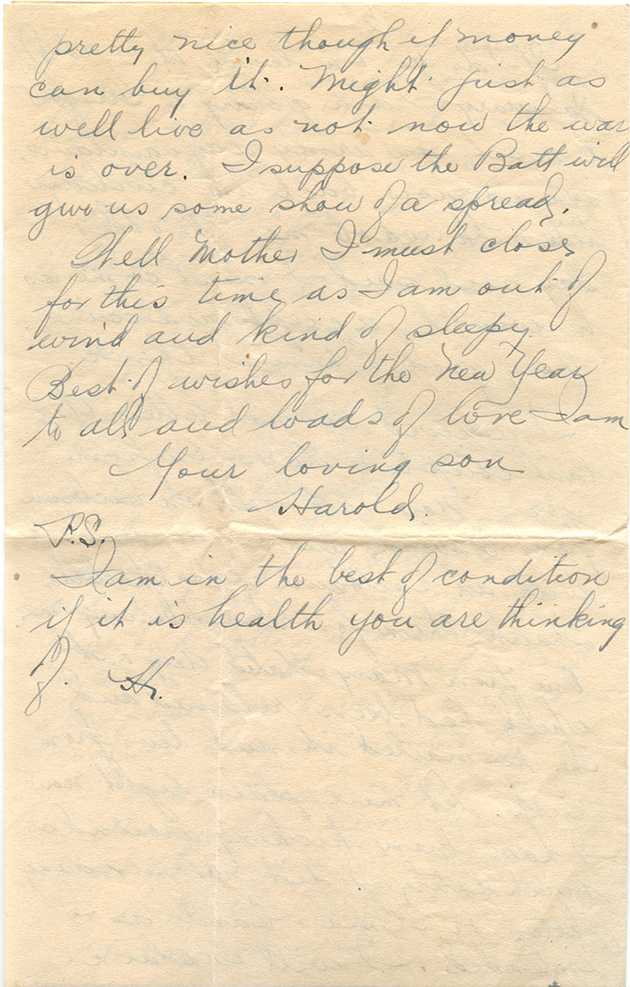 pretty nice though if money
can buy it. Might just as
well live as not now the war
is over. I suppose the Batt will
give us some show of a spread.
Well Mother I must close
for this time as I am out of
wind and kind of sleepy.
Best of wishes for the New Year
to all and loads of love I am
Your loving son
Harold.
P.S.
I am in the best of condition
if it is health you are thinking
of. H.